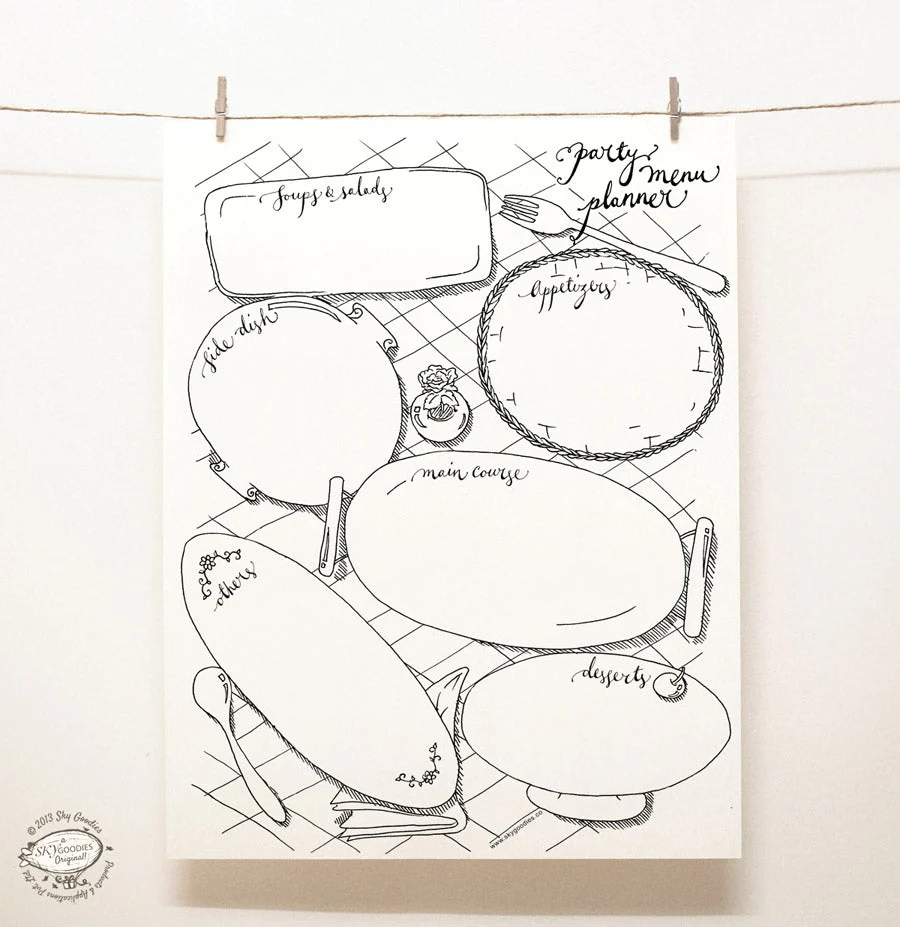 party
menu
planner
Soups & salads
Appetizers
Side dish
main course
others
desserts
www.skygoodies.co
© 2013 Sky Goodies
a
SKYGOODIES
Original!
Products & Applications Pvt Ltd.